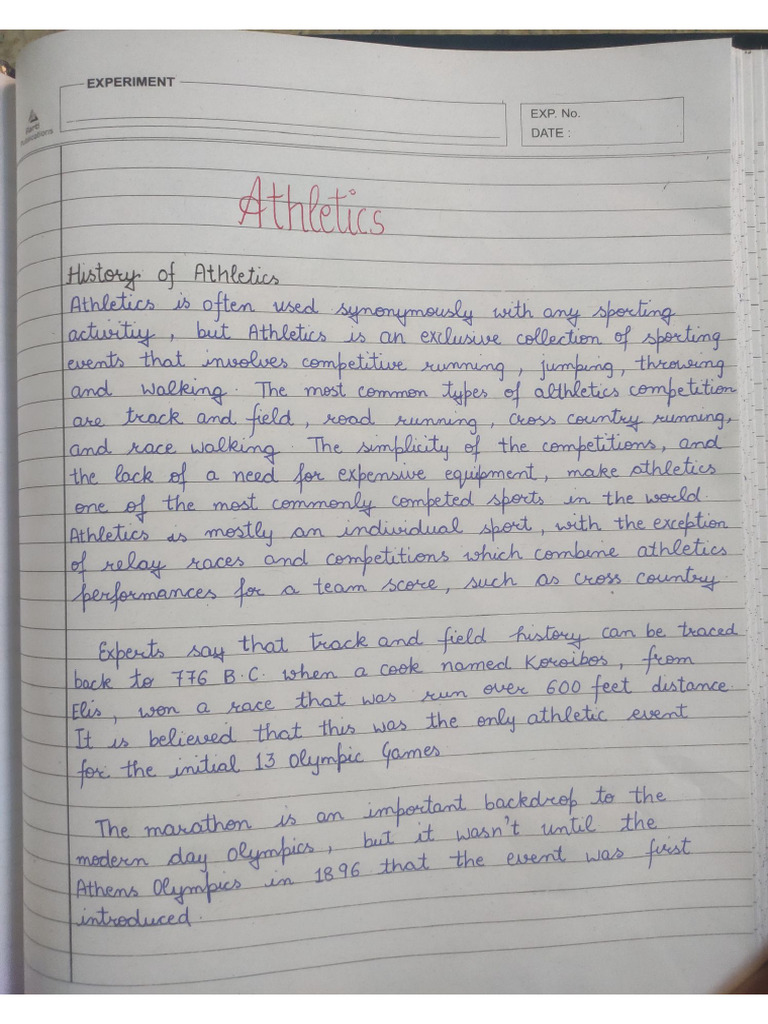 EXPERIMENT
EXP. No.
DATE :
Publications
Athletics
History of Athletics
Athletics is often used synonymously with any sporting
activitiy, but Athletics is an exclusive collection of sporting
events that involves competitive running, jumping, throwing
and walking. The most common types of althletics competition
are track and field, road running, cross country running,
and race walking. The simplicity of the competitions, and
the lack of a need for expensive equipment, make athletics
one of the most commonly competed sports in the world.
Athletics is mostly an individual sport, with the exception
of relay races and competitions which combine athletics
performances for a team score, such as cross country.
Experts say that track and field history can be traced
back to 776 B.C. when a cook named Koroibos, from
Elis, won a race that was run over 600 feet distance.
It is believed that this was the only athletic event
for the initial 13 Olympic Games.
The marathon is an important backdrop to the
modern day Olympics, but it wasn't until the
Athens Olympics in 1896 that the event was first
introduced.